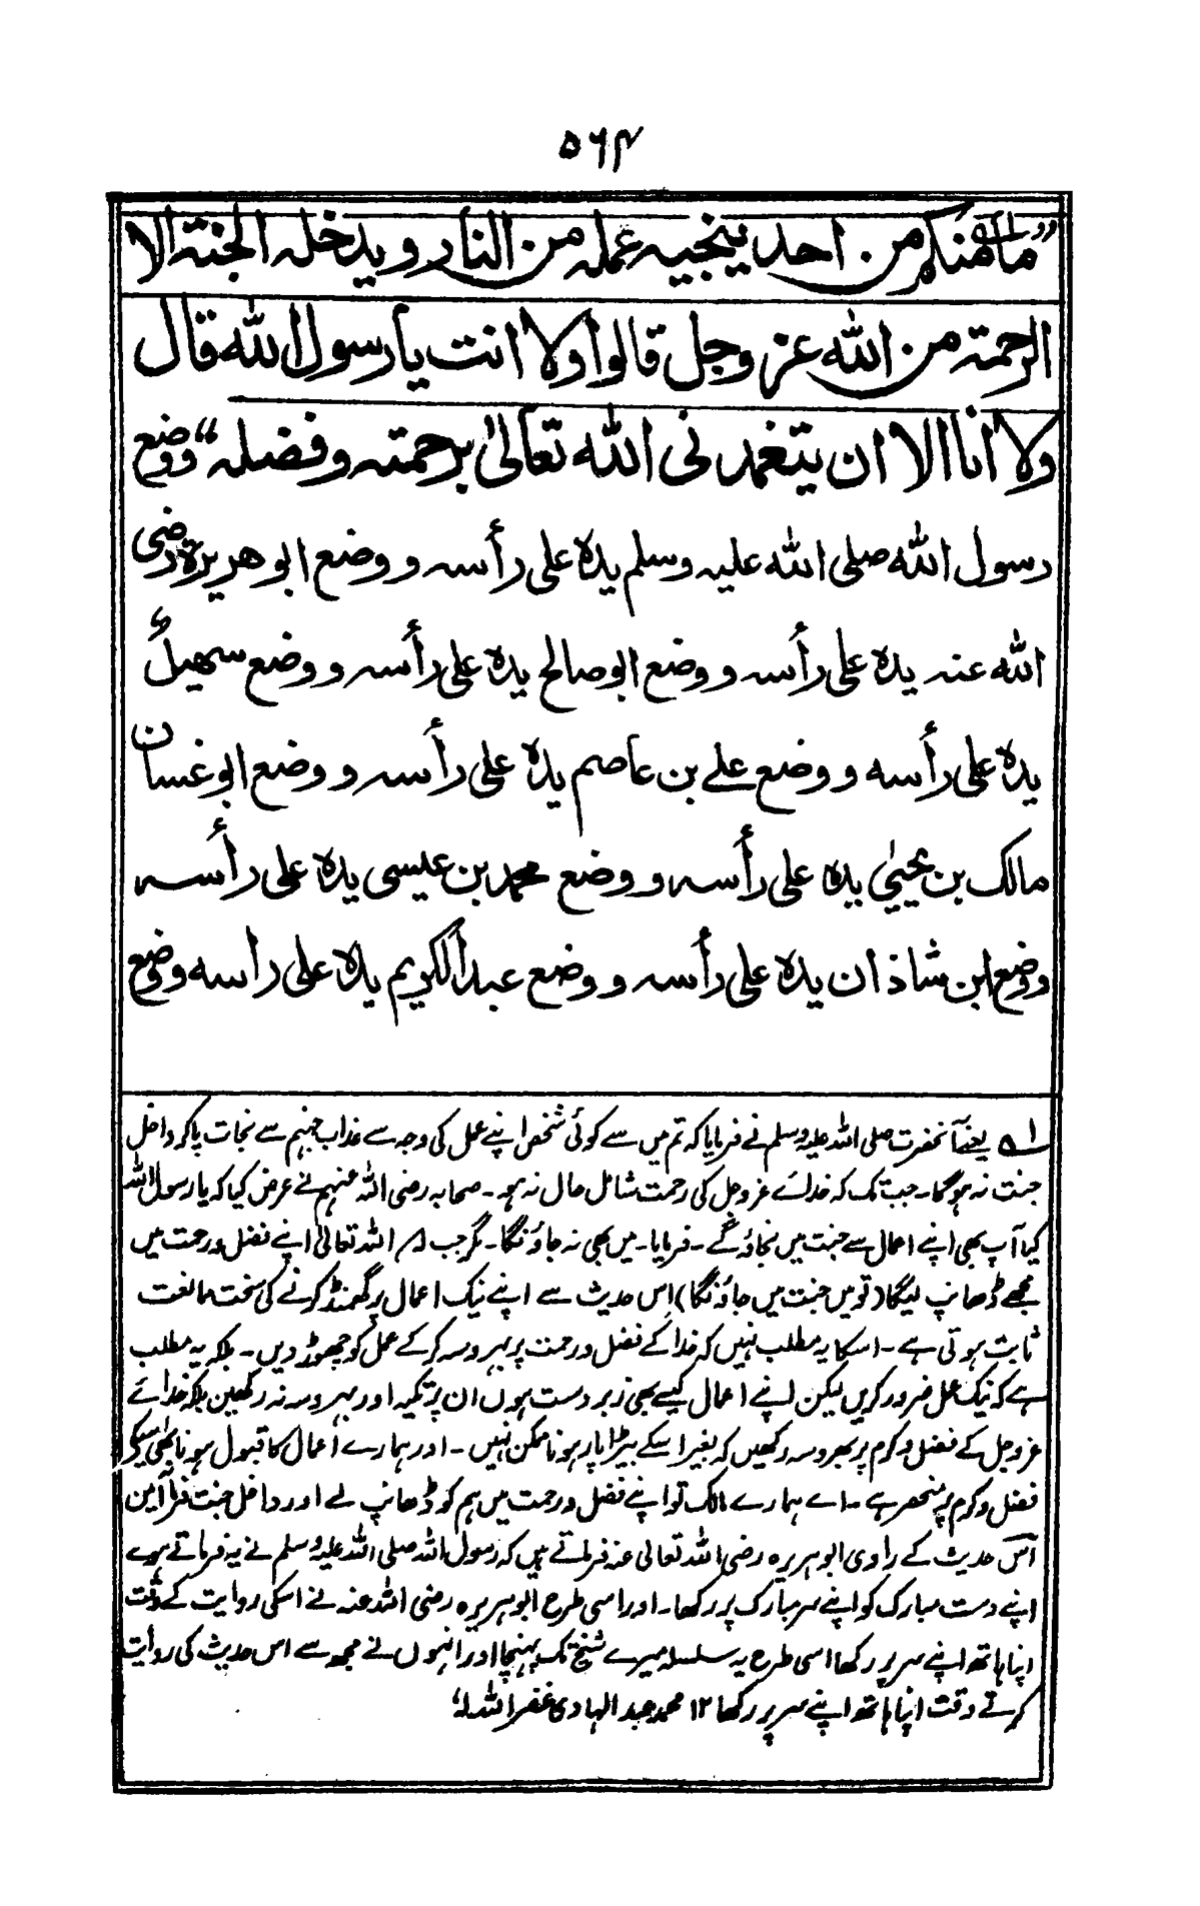 ۵۶۴
”مامنکم من احد ینجیہ عملہ من النار و یدخلہ الجنۃ الا
الرحمۃ من اللہ عز وجل قالوا ولا انت یا رسول اللہ قال
ولا انا الا ان یتغمدنی اللہ تعالیٰ برحمتہ و فضلہ“ ووضع
رسول اللہ صلی اللہ علیہ وسلم یدہ علی رأسہ و وضع ابو ھریرۃ رضی
اللہ عنہ یدہ علی رأسہ و وضع ابو صالح یدہ علی رأسہ و وضع سھیل
یدہ علی رأسہ و وضع علے بن عاصم یدہ علی رأسہ و وضع ابو غسان
مالک بن یحییٰ یدہ علی رأسہ و وضع محمد بن عیسی یدہ علی رأسہ
ووضع ابن شاذان یدہ علی رأسہ و وضع عبدالکریم یدہ علی راسہ ووضع
لہ یعنے آنحضرت صلی اللہ علیہ وسلم نے فرمایا کہ تم میں سے کوئی شخص اپنے عمل کی وجہ سے عذاب جہنم سے نجات پاکر داخل
جنت نہ ہوگا۔ جبتک کہ خدائے عز وجل کی رحمت شامل حال نہ ہو۔ صحابہ رضی اللہ عنہم نے عرض کیا کہ یا رسول اللہ
کیا آپ بھی اپنے اعمال سے جنت میں نجاؤگے۔ فرمایا۔ میں بھی نہ جاؤنگا۔ مگر جب اللہ تعالیٰ اپنے فضل ورحمت میں
مجھے ڈھانپ لیگا (تو میں جنت میں جاؤنگا) اس حدیث سے اپنے نیک اعمال پر گھمنڈ کرنے کی سخت ممانعت
ثابت ہوتی ہے۔ اسکا یہ مطلب نہیں کہ خدا کے فضل ورحمت پر بہروسہ کرکے عمل کو چھوڑدیں۔ بلکہ یہ مطلب
ہے کہ نیک عمل ضرور کریں لیکن اپنے اعمال کیسے بھی زبردست ہوں ان پر تکیہ اور بہروسہ نہ رکھیں بلکہ خدائے
عز وجل کے فضل وکرم پر بھروسہ رکھیں کہ بغیر اسکے بیڑا پار ہونا ممکن نہیں۔ اور ہمارے اعمال کا قبول ہونا بھی اسیکے
فضل وکرم پر منحصر ہے۔ اے ہمارے مالک تو اپنے فضل ورحمت میں ہم کو ڈھانپ لے اور داخل جنت فرما آمین
اس حدیث کے راوی ابو ہریرہ رضی اللہ تعالی عنہ فرماتے ہیں کہ رسول اللہ صلی اللہ علیہ وسلم نے یہ فرماتے ہوے
اپنے دست مبارک کو اپنے سر مبارک پر رکھا۔ اور اسی طرح ابو ہریرہ رضی اللہ عنہ نے اسکی روایت کے وقت
اپنا ہاتھ اپنے سر پر رکھا اسی طرح یہ سلسلہ میرے شیخ تک پہنچا اور انہوں نے مجھ سے اس حدیث کی روایت
کرتے وقت اپنا ہاتھ اپنے سر پر رکھا ۱۲ محمد عبد الہادی غفر اللہ لہ